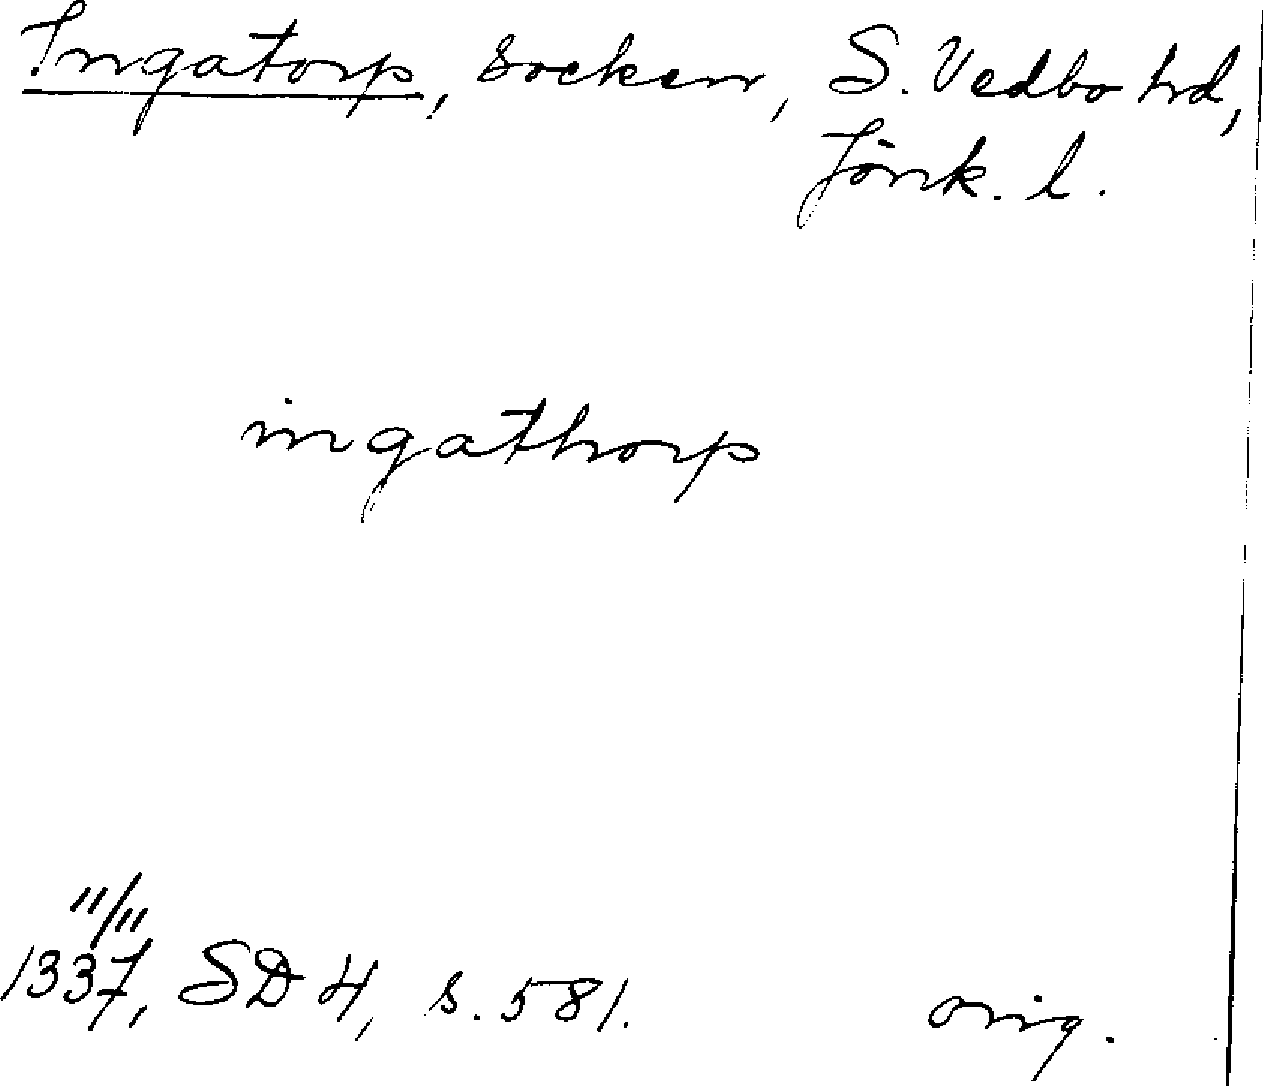 Ingatorp, socken, S. Vedbo hd,
Jönk. l.
ingathorp
11/11
1337, SD 4, s. 581.
orig.